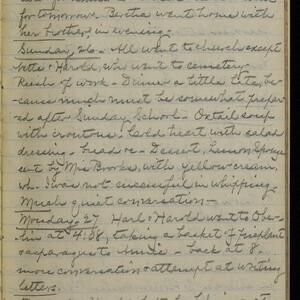 for tomorrow. Bertha went home with
her brother, in evening.
Sunday, 26 - All went to church except
& Harold, who went to cemetery.
Rush of work - Dinner a little late, be-
cause much must be somewhat prepar-
ed after Sunday School - Oxtail soup
with croutons. Cold heart with salad
dressing - bread &c - Dessert, Lemon Sponge
sent by Mrs Brooks, with yellow cream,
wh. I was not successful in whipping.
Much quiet conversation -
Monday, 27 Harl & Harold went to Ober-
lin at 4:08, taking a basket of
& asparagus to - back at 8.
more conversation & attempt at writing
letters.